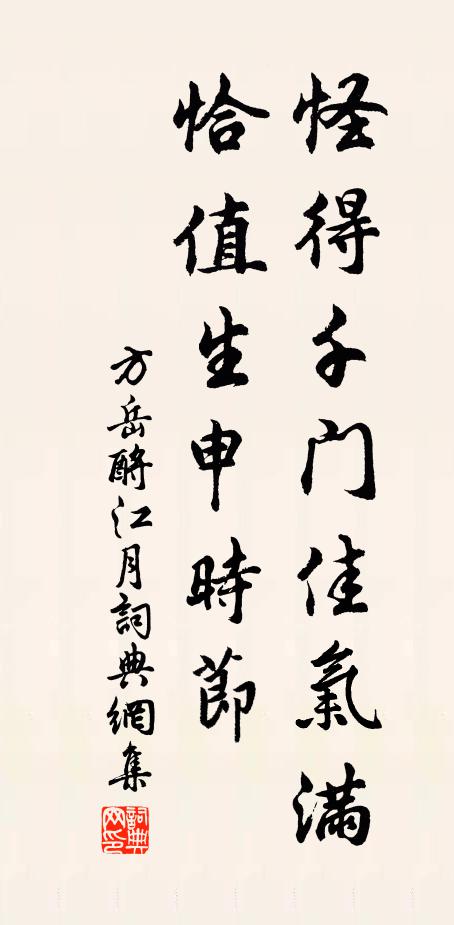 怪得千门佳氣满
恰值生申時節
方岳酹江月詞典網集
詞典网印